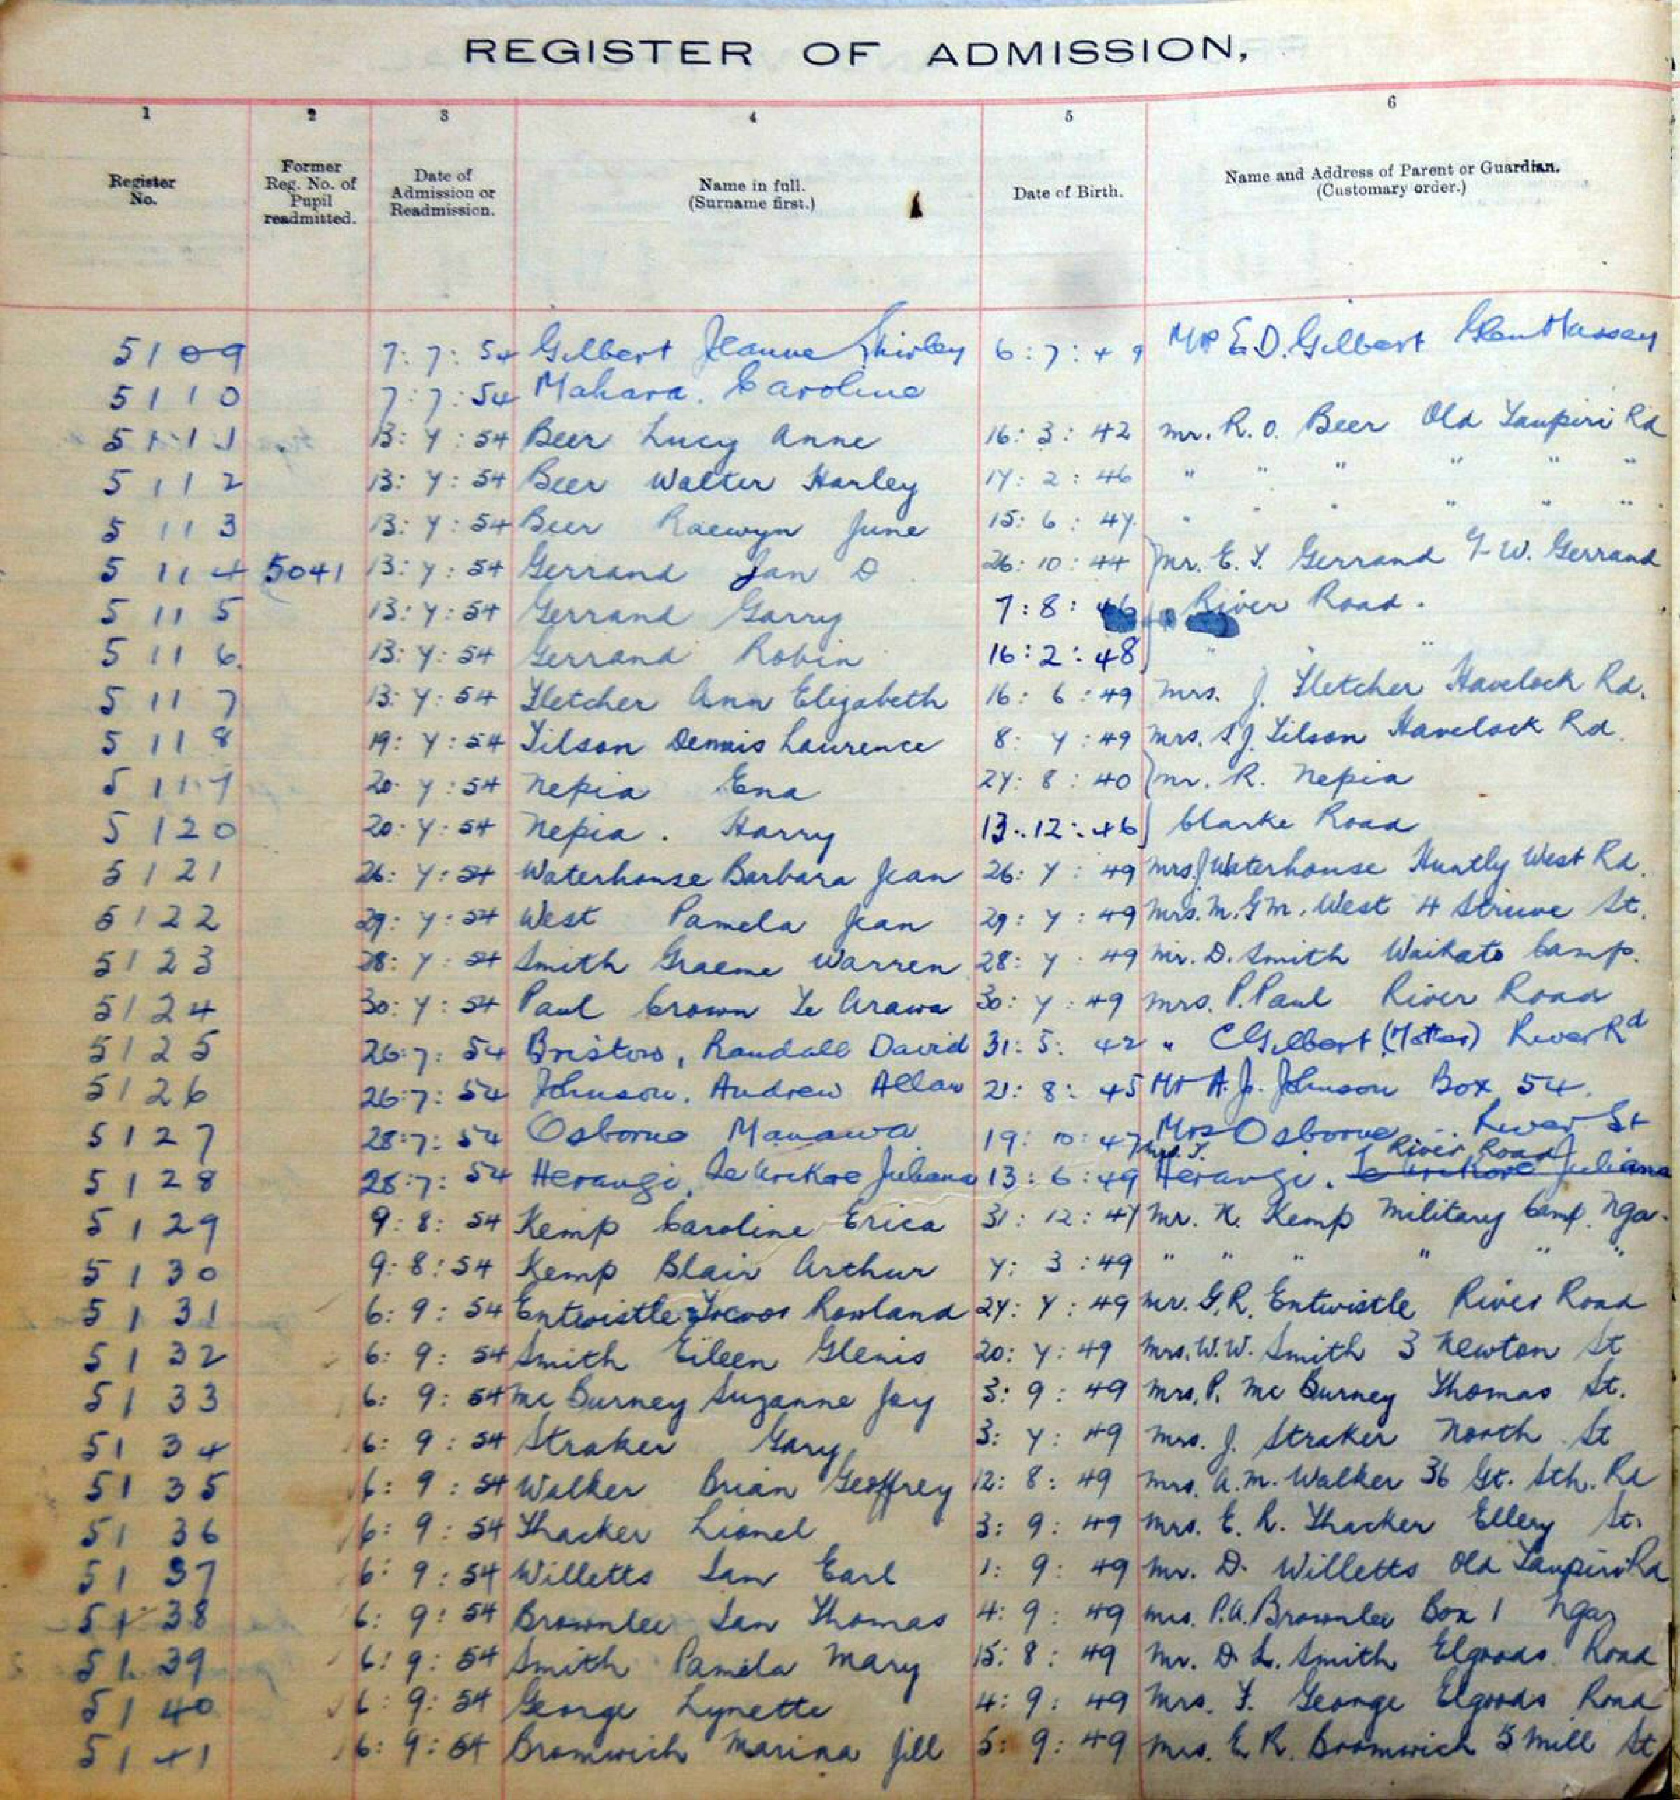 REGISTER OF ADMISSION,
1 2 3 4 5 6
Register No. Former Reg. No. of Pupil readmitted. Date of Admission or Readmission. Name in full. (Surname first.) Date of Birth. Name and Address of Parent or Guardian. (Customary order.)
5109 7:7:54 Gilbert Jeanne Shirley 6:7:49 Mr E.D. Gilbert Glen Massey
5110 7:7:54 Mahara. Caroline
5111 13:7:54 Beer Lucy Anne 16:3:42 Mr. R.O. Beer Old Taupiri Rd
5112 13:7:54 Beer Walter Harley 17:2:46 " " " " " "
5113 13:7:54 Beer Raewyn June 15:6:47 " " " " " "
5114 5041 13:7:54 Gerrand Ian D 26:10:44 Mr. E.T. Gerrand W. Gerrand
5115 13:7:54 Gerrand Garry 7:8:46 River Road.
5116 13:7:54 Gerrand Robin 16:2:48 " "
5117 13:7:54 Fletcher Ann Elizabeth 16:6:49 Mrs. J. Fletcher Havelock Rd.
5118 19:7:54 Tilson Dennis Laurence 8:7:49 Mrs. S.J. Tilson Havelock Rd.
5119 20:7:54 Nepia Ena 27:8:40 Mr. R. Nepia
5120 20:7:54 Nepia. Harry 13:12:46 Clarke Road
5121 26:7:54 Waterhouse Barbara Jean 26:7:49 Mrs J Waterhouse Huntly West Rd.
5122 29:7:54 West Pamela Jean 29:7:49 Mrs. M.G.M. West 4 Struve St.
5123 28:7:54 Smith Graeme Warren 28:7:49 Mr. D. Smith Waikato Camp.
5124 30:7:54 Paul Crown Te Arawa 30:7:49 Mrs. P. Paul River Road
5125 26:7:54 Bristow, Randall David 31:5:42 " C Gilbert (Mother) River Rd
5126 26:7:54 Johnson, Andrew Allan 21:8:45 Mr A.J. Johnson Box 54.
5127 28:7:54 Osborne Manawa 19:10:47 Mrs Osborne River St
5128 28:7:54 Herangi, Te Juliana 13:6:49 Mrs. T. Herangi. River Road Juliana
5129 9:8:54 Kemp Caroline Erica 31:12:47 Mr. N. Kemp Military Camp. Nga.
5130 9:8:54 Kemp Blair Arthur 7:3:49 " " " " " "
5131 6:9:54 Entwistle Trevor Rowland 27:7:49 Mr. G.R. Entwistle River Road
5132 6:9:54 Smith Eileen Glenis 20:7:49 Mrs. W.W. Smith 3 Newton St
5133 6:9:54 Mc Burney Suzanne Joy 3:9:49 Mrs. P. Mc Burney Thomas St.
5134 6:9:54 Straker Gary 3:7:49 Mrs. J. Straker North St
5135 6:9:54 Walker Brian Geoffrey 12:8:49 Mrs. A.M. Walker 36 Gt. Sth. Rd
5136 6:9:54 Thacker Lionel 3:9:49 Mrs. E.R. Thacker Ellery St.
5137 6:9:54 Willetts Ian Earl 1:9:49 Mr. D. Willetts Old Taupiri Rd
5138 6:9:54 Brownlee Ian Thomas 4:9:49 Mrs. P.A. Brownlee Box 1 Nga
5139 6:9:54 Smith Pamela Mary 15:8:49 Mr. D.L. Smith Elgoods Road
5140 6:9:54 George Lynette 4:9:49 Mrs. F. George Elgoods Road
5141 6:9:54 Bromwich Marina Jill 5:9:49 Mrs. E.R. Bromwich 5 Mill St